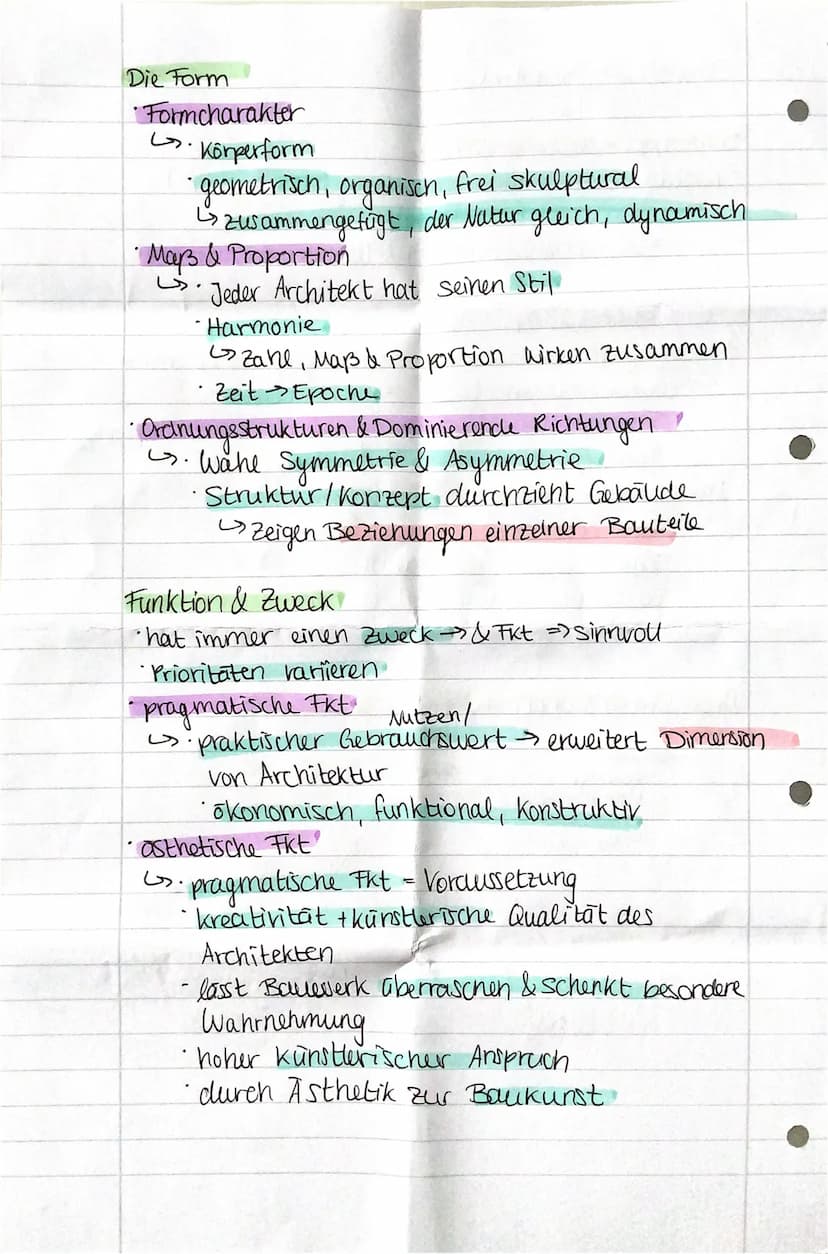 Die Form
· Formcharakter
↳ · Körperform
· geometrisch, organisch, frei skulptural
↳ zusammengefügt, der Natur gleich, dynamisch
· Maß & Proportion
↳ · Jeder Architekt hat seinen Stil
· Harmonie
↳ Zahl, Maß & Proportion wirken zusammen
· Zeit → Epoche
· Ordnungsstrukturen & Dominierende Richtungen
↳ · Symmetrie & Asymmetrie
· Struktur/Konzept durchzieht Gebäude
↳ zeigen Beziehungen einzelner Bauteile
Funktion & Zweck
· hat immer einen Zweck → & Fkt ⇒ sinnvoll
· Prioritäten variieren
· pragmatische Fkt
Nutzen/
↳ · praktischer Gebrauchswert → erweitert Dimension
von Architektur
· ökonomisch, funktional, konstruktiv
· ästhetische Fkt
↳ · pragmatische Fkt = Voraussetzung
· kreativität + künstlerische Qualität des
Architekten
- lässt Bauwerk überraschen & schenkt besondere
Wahrnehmung
· hoher künstlerischer Anspruch
· durch Ästhetik zur Baukunst